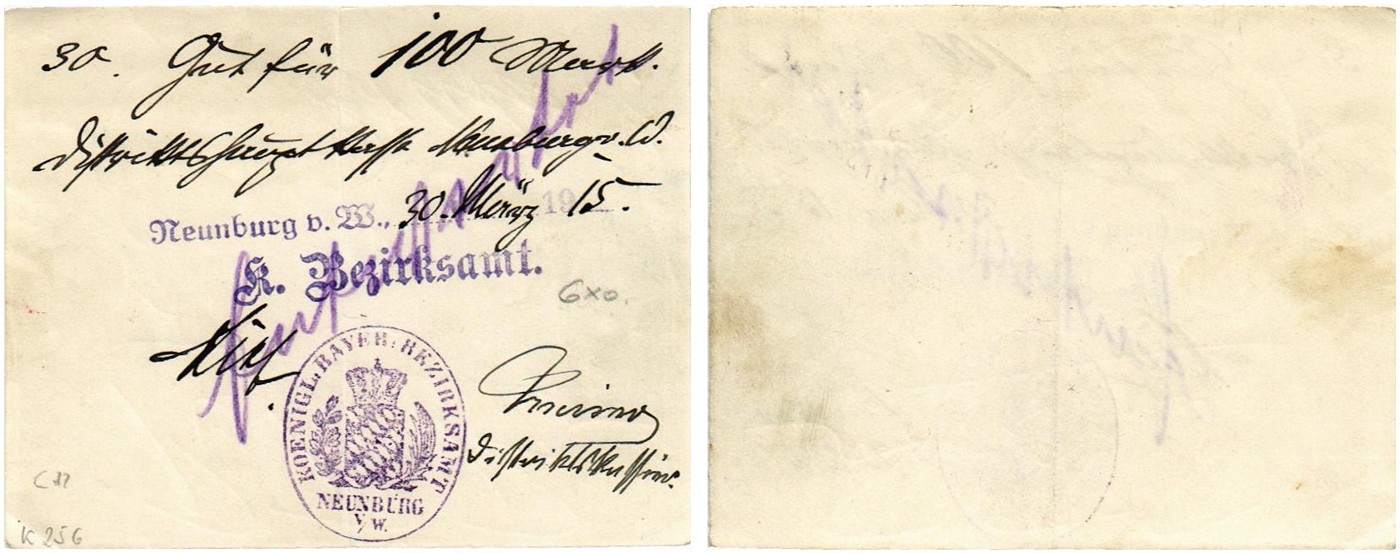 30. Gut für 100 Mark.
Distriktshauptkasse Neunburg v. W.
Neunburg v. W., 30. März 1915.
K. Bezirksamt.
6x0.
KOENIGL. BAYER. BEZIRKSAMT
NEUNBURG
V/W.
Distriktskassier.
K 256